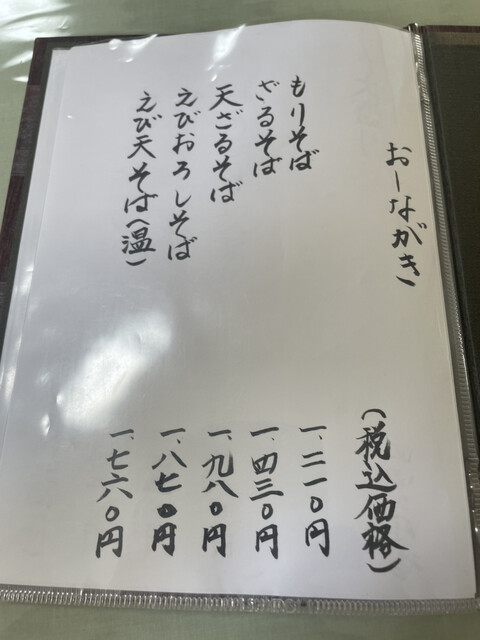 おしながき (税込価格)
もりそば 一、二一〇円
ざるそば 一、四三〇円
天ざるそば 一、九八〇円
えびおろしそば 一、八七〇円
えび天そば(温) 一、七六〇円